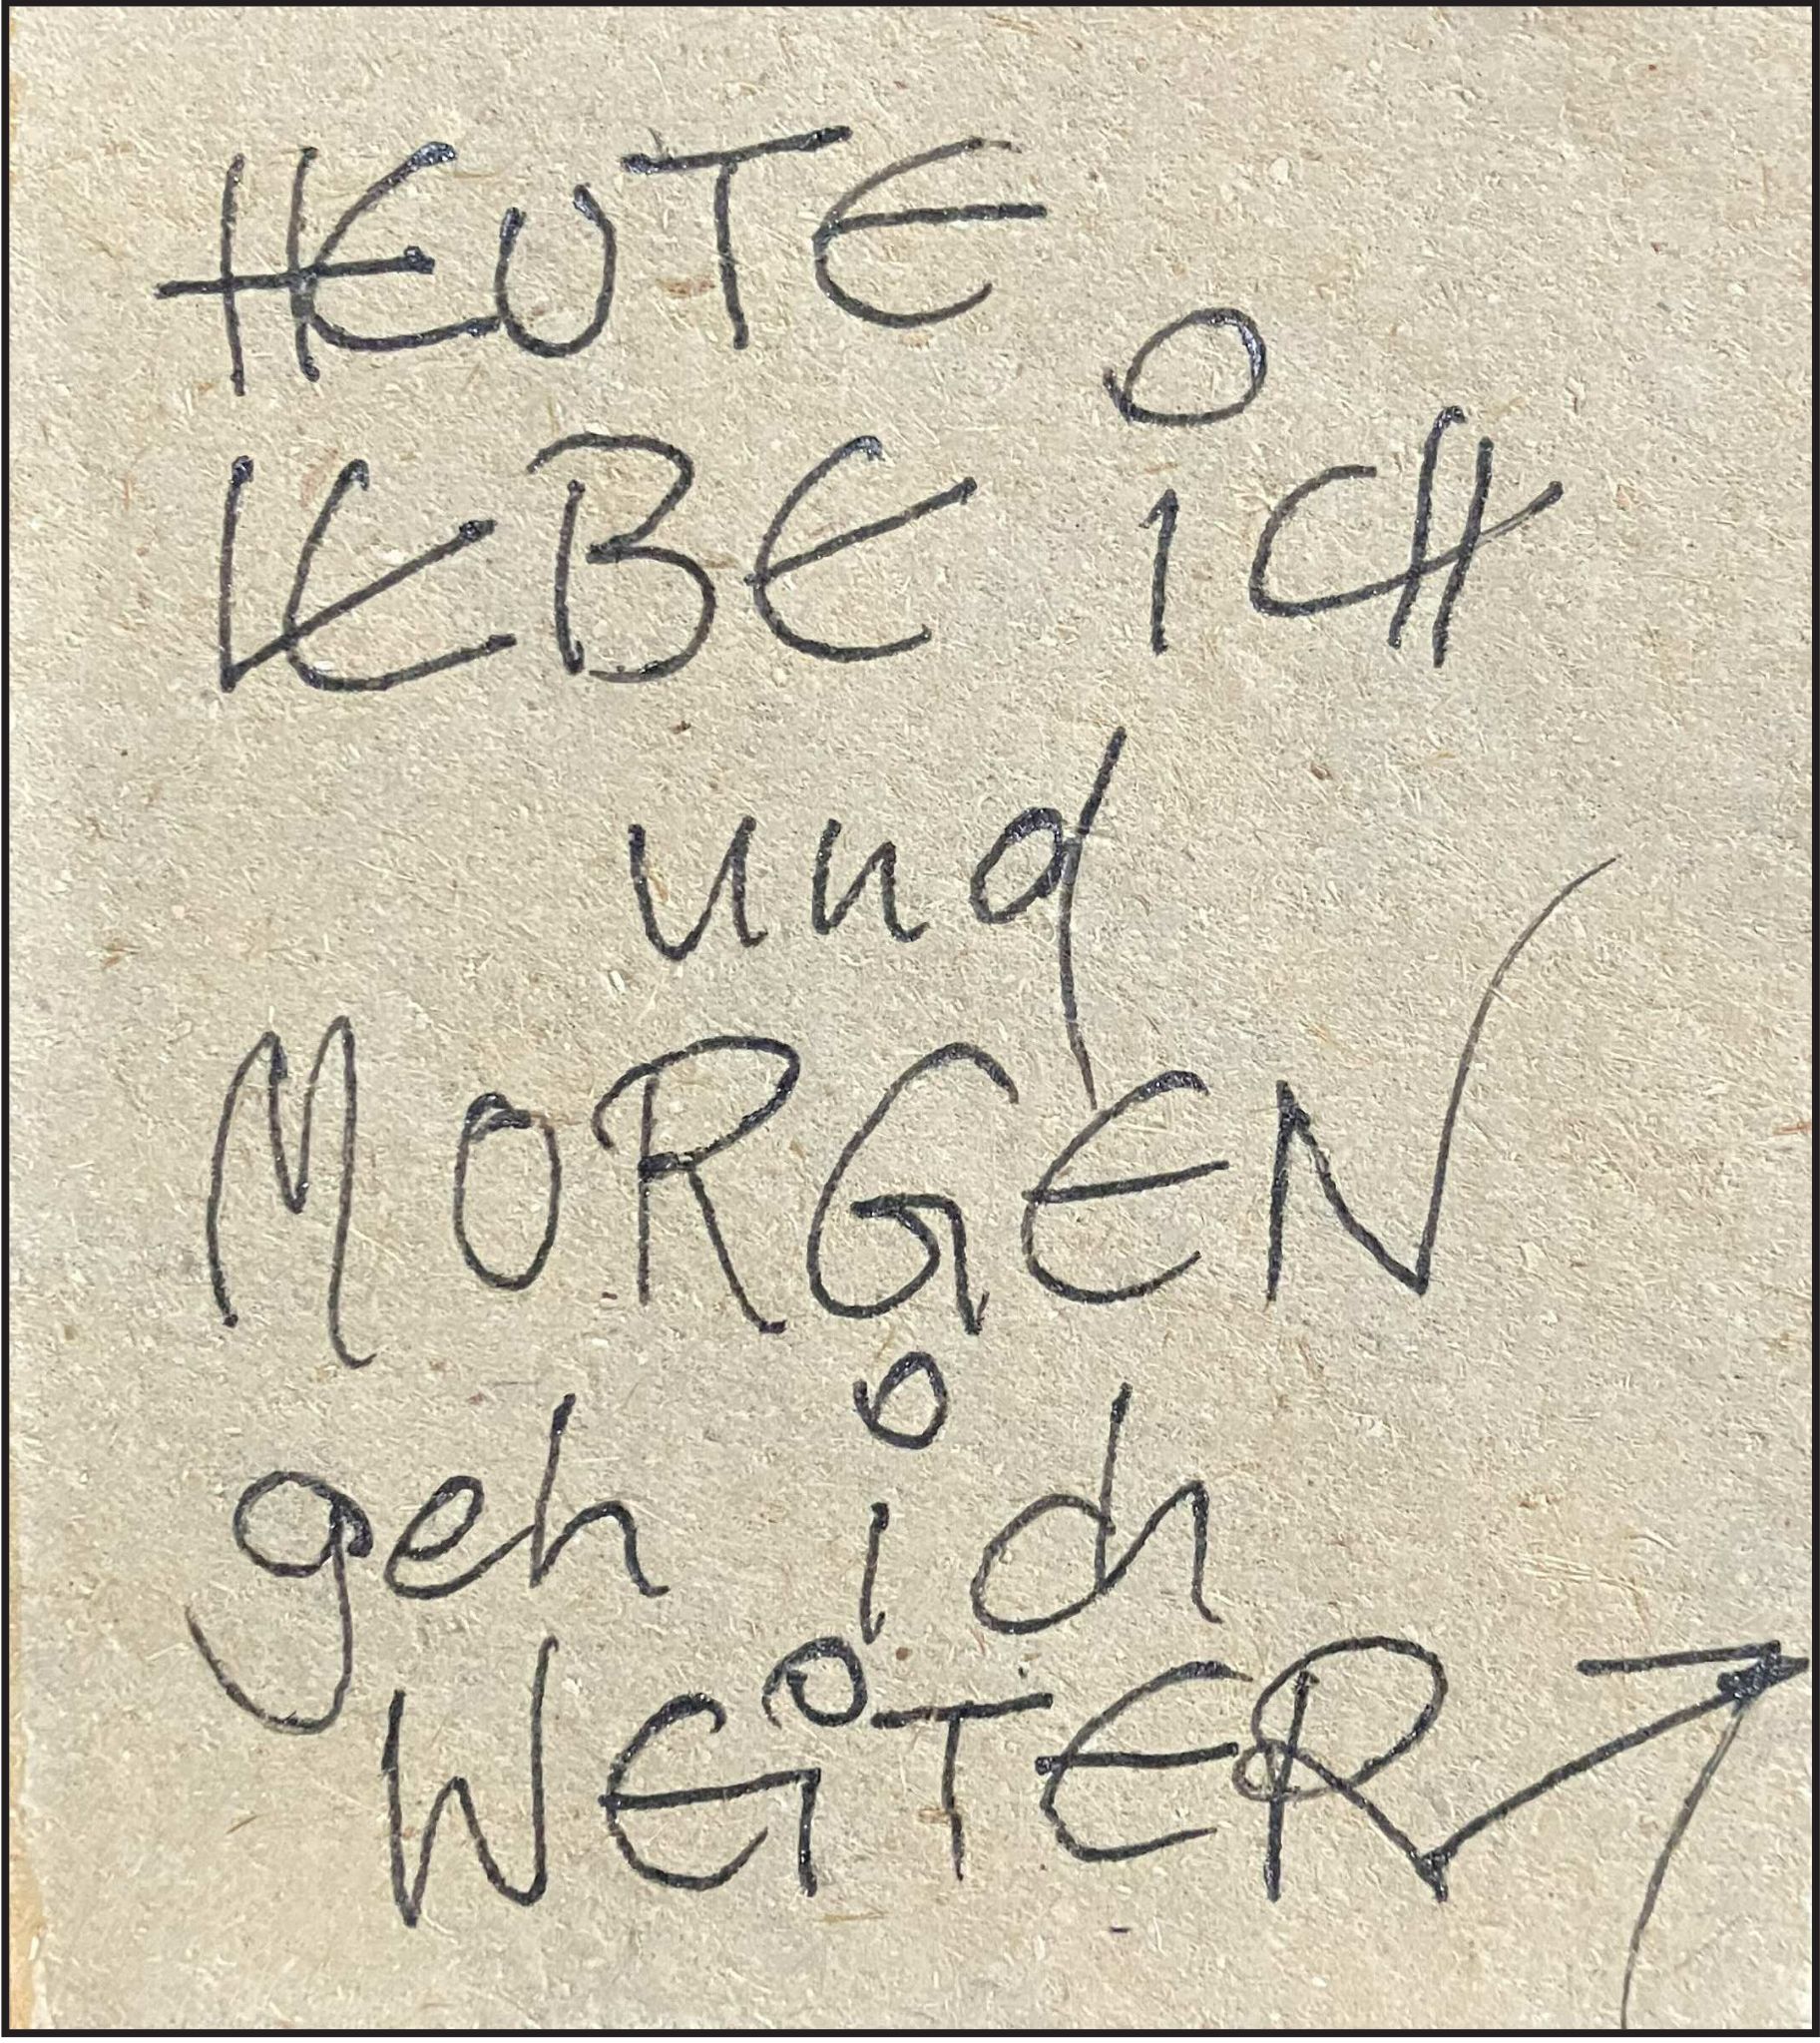 HEUTE
LEBE iCH
und
MORGEN
geh ich
WEiTER